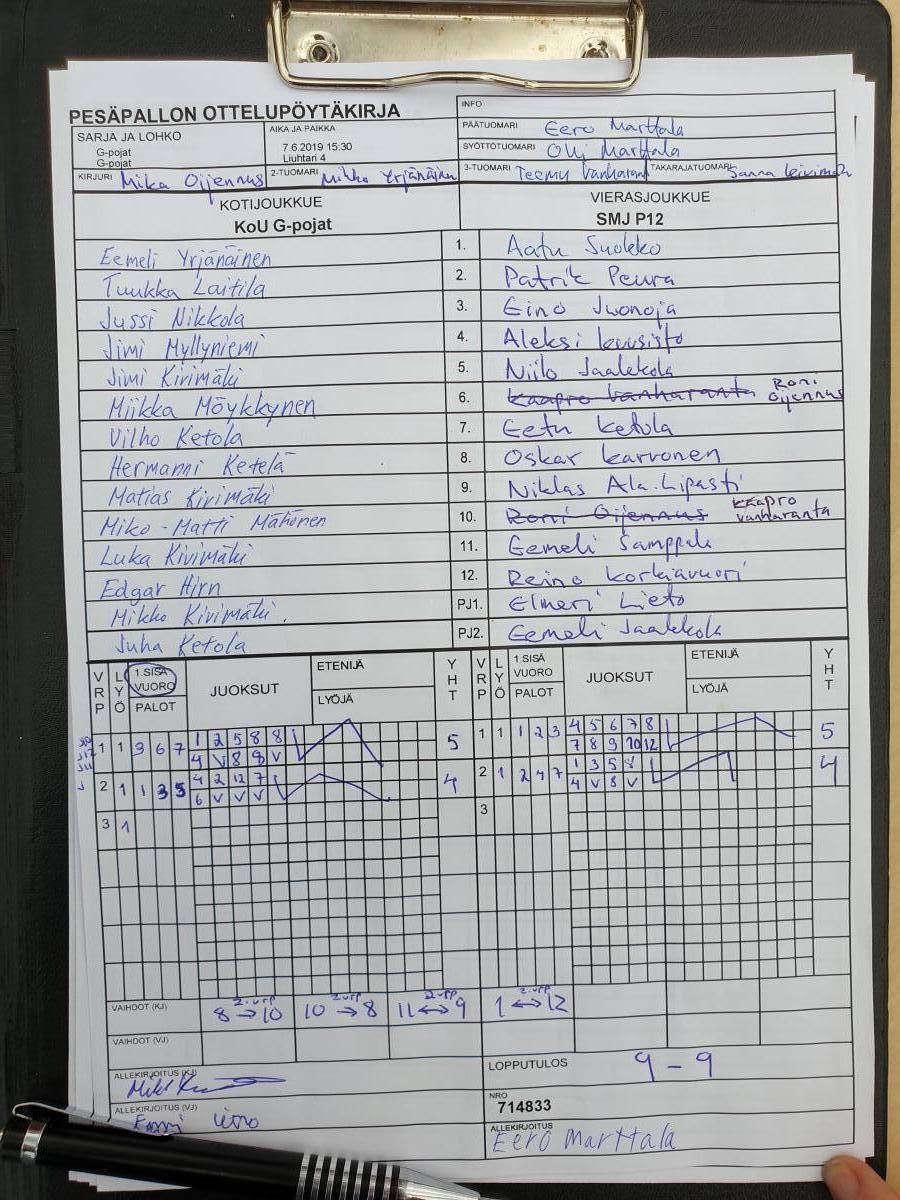 PESÄPALLON OTTELUPÖYTÄKIRJA
INFO
SARJA JA LOHKO
G-pojat
G-pojat
AIKA JA PAIKKA
7.6.2019 15:30
Liuhtari 4
PÄÄTUOMARI Eero Marttala
SYÖTTÖTUOMARI Olli Marttala
KIRJURI Mika Oijennus 2-TUOMARI Mikko Yrjänäinen 3-TUOMARI Teemu Vanharanta TAKARAJATUOMARI Sanna
KOTIJOUKKUE VIERASJOUKKUE
KoU G-pojat SMJ P12
Eemeli Yrjänäinen 1. Aatu Suokko
Tuukka Laitila 2. Patrik Peura
Jussi Nikkola 3. Eino Juonoja
Jimi Myllyniemi 4. Aleksi Kuusisto
Jimi Kivimäki 5. Niilo Jaakkola
Miikka Möykkynen 6. Kaapro Vanharanta Roni Oijennus
Vilho Ketola 7. Eetu Ketola
Hermanni Ketelä 8. Oskar Karvonen
Matias Kivimäki 9. Niklas Ala-Lipasti
Miko-Matti Mähönen 10. Roni Oijennus Kaapro Vanharanta
Luka Kivimäki 11. Eemeli Samppala
Edgar Hirn 12. Reino Korkiavuori
Mikko Kivimäki PJ1. Elmeri Lieto
Juha Ketola PJ2. Eemeli Jaakkola
VRP LYÖ 1.SISÄ VUORO PALOT JUOKSUT ETENIJÄ LYÖJÄ YHT VRP LYÖ 1.SISÄ VUORO PALOT JUOKSUT ETENIJÄ LYÖJÄ YHT
1 1 3 6 7 1 2 5 8 8 5 1 1 1 2 3 4 5 6 7 8 5
4 V 8 9 V 7 8 9 10 12
2 1 1 3 5 4 2 12 7 4 2 1 2 4 7 1 3 5 8 4
6 V V V 4 V 8 V
3 1 3
VAIHDOT (KJ) 2.vrp 8 → 10 2.vrp 10 → 8 2.vrp 11 ↔ 9 2.vrp 1 ↔ 12
VAIHDOT (VJ)
ALLEKIRJOITUS (KJ)
LOPPUTULOS 9 - 9
ALLEKIRJOITUS (VJ)
NRO
714833
ALLEKIRJOITUS
Eero Marttala